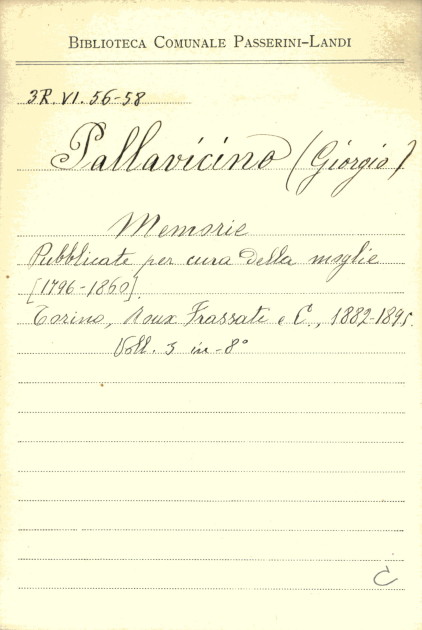 BIBLIOTECA COMUNALE PASSERINI-LANDI
3R. VI. 56-58
Pallavicino (Giorgio)
Memorie
Pubblicate per cura della moglie
[1796-1860].
Torino, Roux Frassati e C., 1882-1895.
Voll. 3 in-8°
C